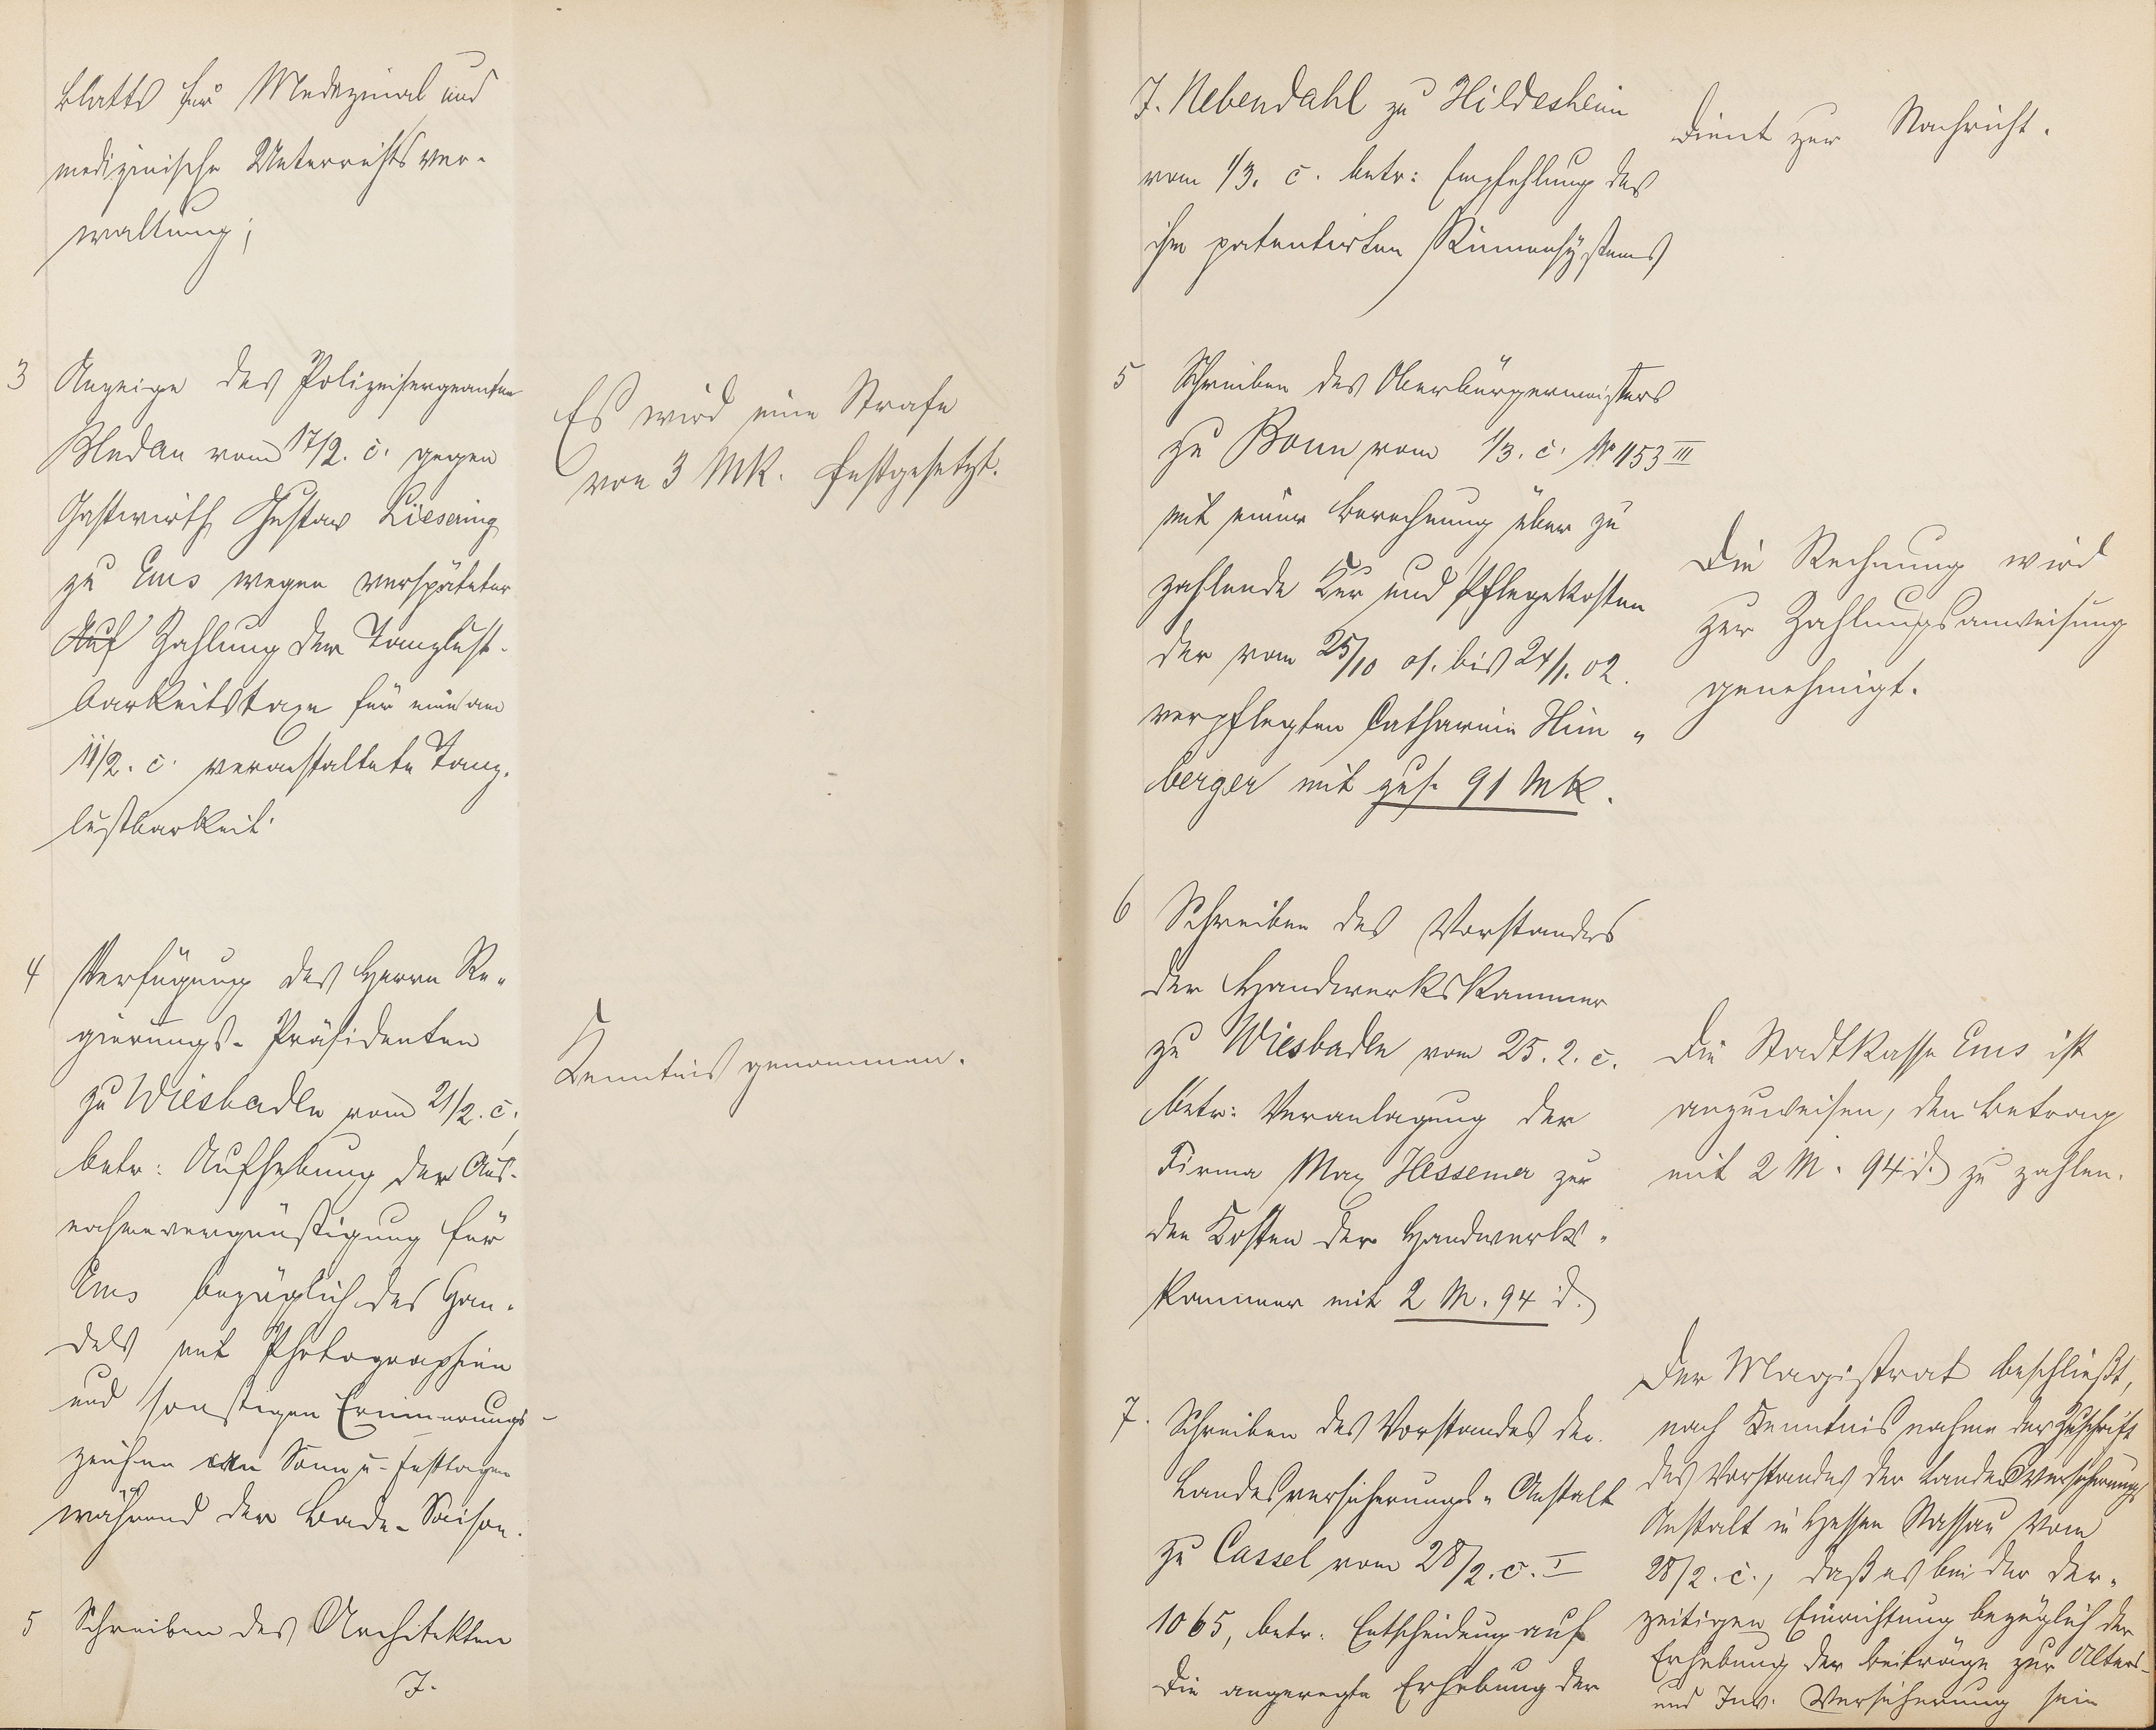 blatts für Medizinal und
medizinische Unterrichtsver-
waltung;
3 Anzeige des Polizeisergeanten
vom 17/2. c. gegen
Gastwirth Gustav Liesering
zu Ems wegen verspäteter
Auf Zahlung der Tanzlust-
barkeitstaxe für eine am
11/2. c. veranstaltete Tanz-
lustbarkeit.
Es wird eine Strafe
von 3 Mk. festgesetzt.
4 Verfügung des Herrn Re-
gierungs-Präsidenten
zu Wiesbaden vom 21/2. c.,
betr: Aufhebung der Aus-
nahmevergünstigung für
Ems bezüglich des Han-
dels mit Photographien
und sonstigen Erinnerungs-
zeichen an Sonn u- Festtagen
während der Bade-Saison.
Kenntnis genommen.
5 Schreiben des Architekten
J.
J. Nebendahl zu Hildesheim
vom 1/3. c. betr: Empfehlung des
ihm patentirten Rinnensystems
Dient zur Nachricht.
5 Schreiben des Oberbürgermeisters
zu Bonn vom 1/3. c. No 1153 III
mit einer Berechnung über zu
zahlende Kur und Pflegekosten
der vom 25/10 01. bis 24/1. 02.
verpflegten Catharina Him-
berger mit zus. 91 Mk.
Die Rechnung wird
zur Zahlungsanweisung
genehmigt.
6 Schreiben des Vorstandes
der Handwerkskammer
zu Wiesbaden vom 25. 2. c.
betr: Veranlagung der
Firma Max Hessemer zu
den Kosten der Handwerks-
kammer mit 2 M. 94 d.
Die Stadtkasse Ems ist
anzuweisen, den Betrag
mit 2 M. 94 d. zu zahlen.
7. Schreiben des Vorstandes der
Landesversicherungs-Anstalt
zu Cassel vom 28/2. c. I
1065, betr. Entscheidung auf
die angeregte Erhebung der
Der Magistrat beschließt,
nach Kenntnisnahme der Zuschrift
des Vorstandes der Landesversicherungs
Anstalt in Hessen Nassau vom
28/2. c., daß es bei der der-
zeitigen Einrichtung bezüglich der
Erhebung der Beiträge zur Alters-
und Inv. Versicherung sein